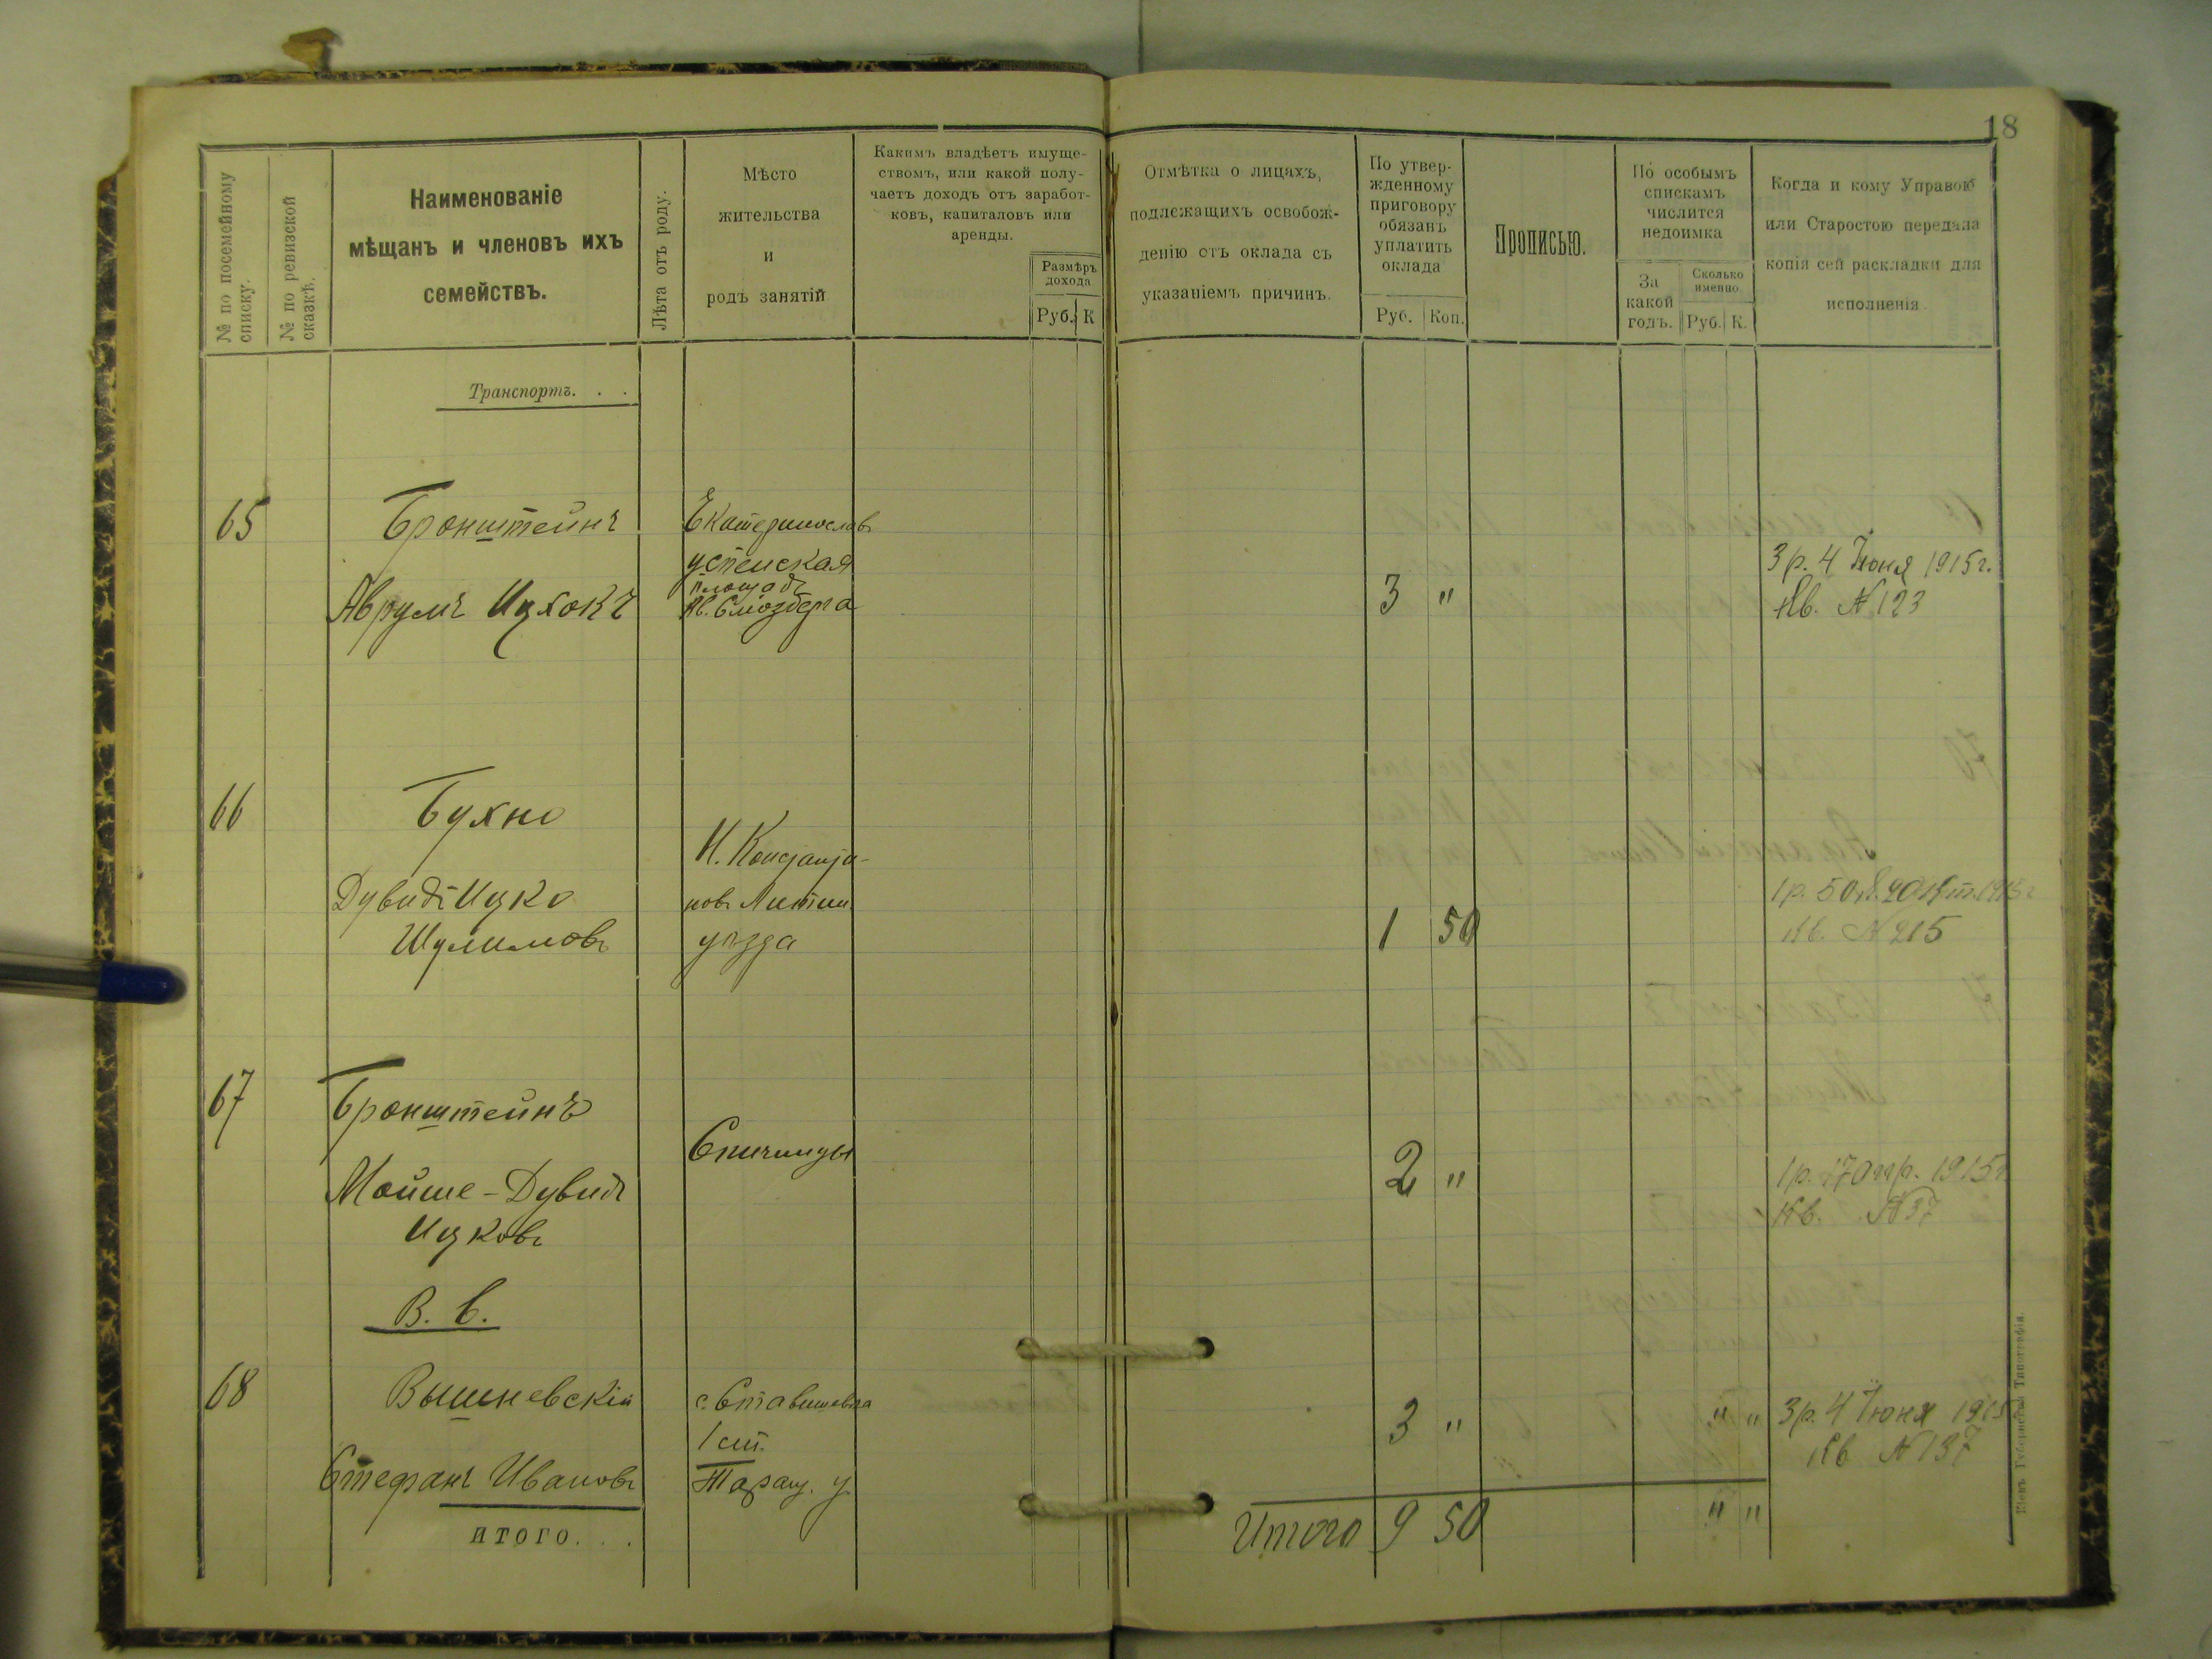 18
№ по посемейному списку.
№ по ревизской сказкѣ.
Наименованіе
мѣщанъ и членовъ ихъ
семействъ.
Лѣта отъ роду.
Мѣсто
жительства
и
родъ занятій
Какимъ владѣетъ имуще-
ствомъ, или какой полу-
чаетъ доходъ отъ заработ-
ковъ, капиталовъ или
аренды.
Размѣръ
дохода
Руб. К
Отмѣтка о лицахъ,
подлежащихъ освобож-
денію отъ оклада съ
указаніемъ причинъ.
По утвер-
жденному
приговору
обязанъ
уплатить
оклада
Руб. Коп.
Прописью.
По особымъ
спискамъ
числится
недоимка
За
какой
годъ.
Сколько
именно.
Руб. К.
Когда и кому Управою
или Старостою передана
копія сей раскладки для
исполненія
Транспортъ. . .
65 Бронштейнъ
Аврумъ Ицхокъ
Екатеринославъ
успенская
площадь
3 "
3 р. 4 Іюня 1915 г.
Кв. № 123
66 Бухно
Дувидъ Ицко
Шулимовъ
Н. Константи-
новъ Литин.
уѣзда
1 50
1 р. 50 к. 20 Окт. 1915 г
Кв. № 215
67 Бронштейнъ
Мойше-Дувидъ
Ицковъ
Спичинцы
2 "
1 р. 17 Апр. 1915 г.
Кв. № 37
В. в.
68 Вышневскій
Стефанъ Ивановъ
с. Ставищевка
1 ст.
Таращ. у.
3 " " "
3 р. 4 Іюня 1915
Кв № 137
итого. . .
Итого 9 50 " "
Кіевъ Губернская Типографія.